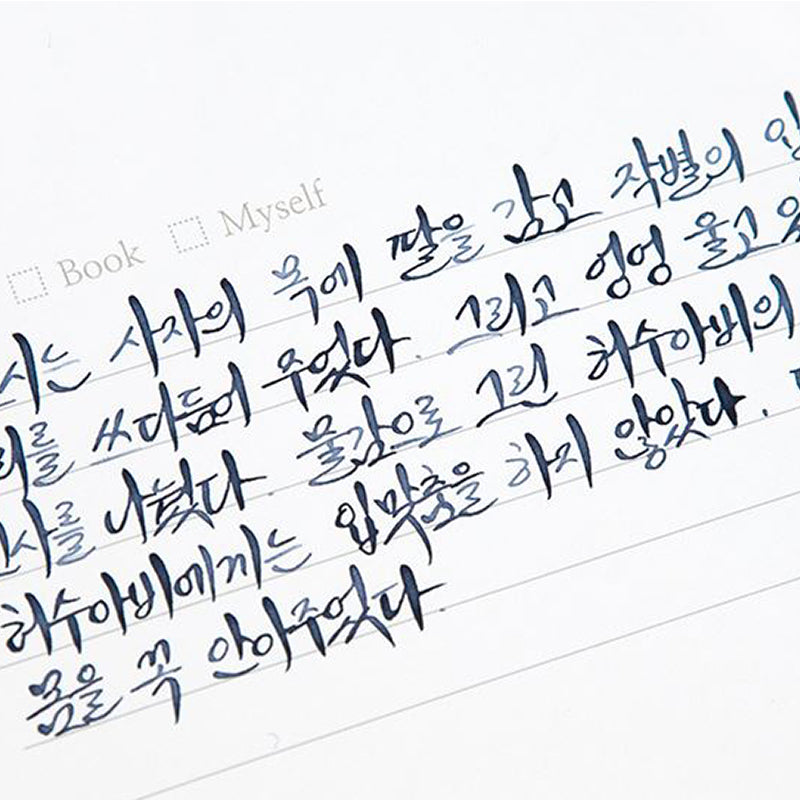 Book Myself
시는 사자의 목에 팔을 감고 작별의
를 쓰다듬어 주었다. 그리고 엉엉 울고
사를 나눴다. 물감으로 그린 허수아비의
허수아비에게는 입맞춤을 하지 않았다.
몸을 꼭 안아주었다.